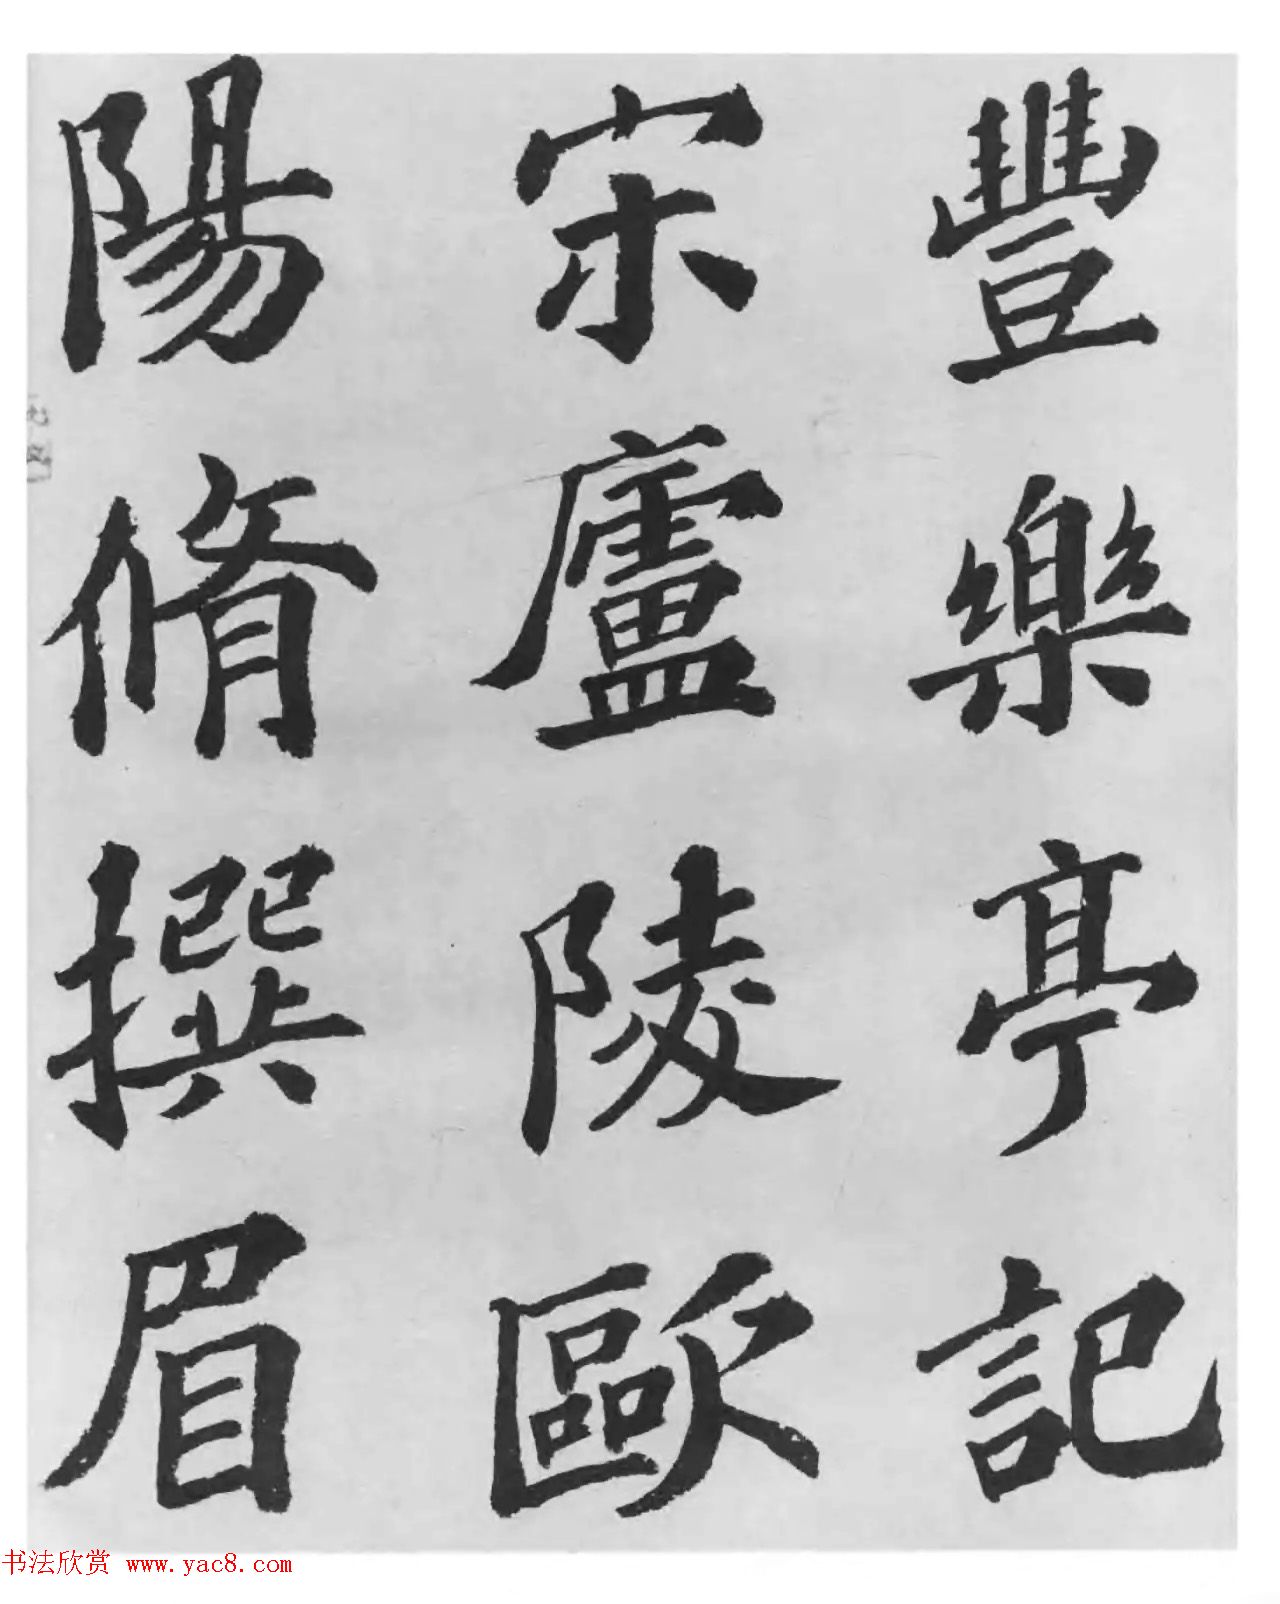 豐樂亭記
宋廬陵歐
陽脩撰眉
书法欣赏 www.yac8.com